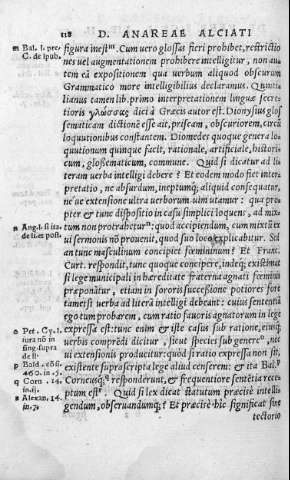 118 D. ANAREAE ALCIATI
m Bal. l. prec.
C. de ipub.
figura inest m. Cum uero glossas fieri prohibet, restrictio
nes uel augmentationem prohibere intelligitur, non au-
tem eā expositionem qua uerbum aliquod obscurum
Grammatico more intelligibilius declaramus. Quinti-
lianus tamen lib. primo interpretationem linguæ secre-
tioris γλώσσας dici à Græcis autor est. Dionysius glos
sematicam dictionē esse ait, priscam, obscuriorem, circa
loquutionibus constantem. Diomedes quoque genera lo-
quutionum quinque facit, rationale, artificiale, histori-
cum, glossematicum, commune. Quid si dicatur ad li-
teram uerba intelligi debere? Et eodem modo fiet inter-
pretatio, ne absurdum, ineptumq; aliquid consequatur,
ne ue extensione ultra uerborum uim utamur: qua pro-
pter & tunc dispositio in casu simplici loquens, ad mix-
n Ang. l. si ita.
de lib. & poss.
tum non protrahetur n: quod accipiendum, cum mixtū ex
ui sermonis nō prouenit, quod suo loco explicabitur. Sed
an tunc masculinum concipiet fœmininum? Et Franc.
Curt. respondit, tunc quoque concipere, indeq; existimat
si lege municipali in hæreditate fratris agnati fœminis
præponātur, etiam in sororis successione potiores fore
tametsi uerba ad literā intelligi debeant: cuius sententiā
ego tum probarem, cum ratio fauoris agnatorum in lege
o Pet. Cy. l.
iura nō in
sing. supra
de ll.
expressa est: tunc enim & iste casus sub ratione, eiusq;
uerbis comprēdi dicitur, sicut species sub genere o, nec
ui extensionis producitur: quod si ratio expressa non sit,
p Bald. cōsi.
460. in. 5.
existente supra scripta lege aliud censerem: & ita Bal. p
q Corn. 14.
in. ij.
Corneusq; q responderunt, & frequentiore sentētia rece-
r Alexan. 14.
in. 7.
ptum est r. Quid si lex dicat statutum præcisè intelli-
gendum, obseruandumq;? Et præcisè hic significat sine
tectorio